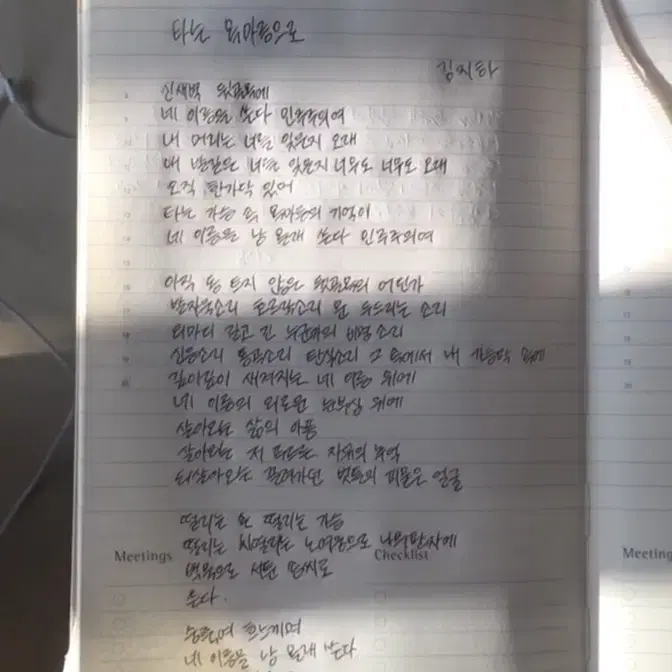 타는 목마름으로
김지하
신새벽 뒷골목에
네 이름을 쓴다 민주주의여
내 머리는 너를 잊은지 오래
내 발길은 너를 잊은지 너무도 너무도 오래
오직 한가닥 있어
타는 가슴 속 목마름의 기억이
네 이름을 남 몰래 쓴다 민주주의여
아직 동 트지 않은 뒷골목의 어딘가
발자욱소리 호르락소리 문 두드리는 소리
외마디 길고 긴 누군가의 비명 소리
신음소리 통곡소리 탄식소리 그 속에서 내 가슴팍 속에
깊이깊이 새겨지는 네 이름 위에
네 이름의 외로운 눈부심 위에
살아오는 삶의 아픔
살아오는 저 푸르른 자유의 추억
되살아오는 끌려가던 벗들의 피묻은 얼굴
떨리는 손 떨리는 가슴
떨리는 치떨리는 노여움으로 나무판자에
백묵으로 서툰 솜씨로
쓴다.
숨죽여 흐느끼며
네 이름을 남 몰래 쓴다
Meetings
Checklist
Meeting